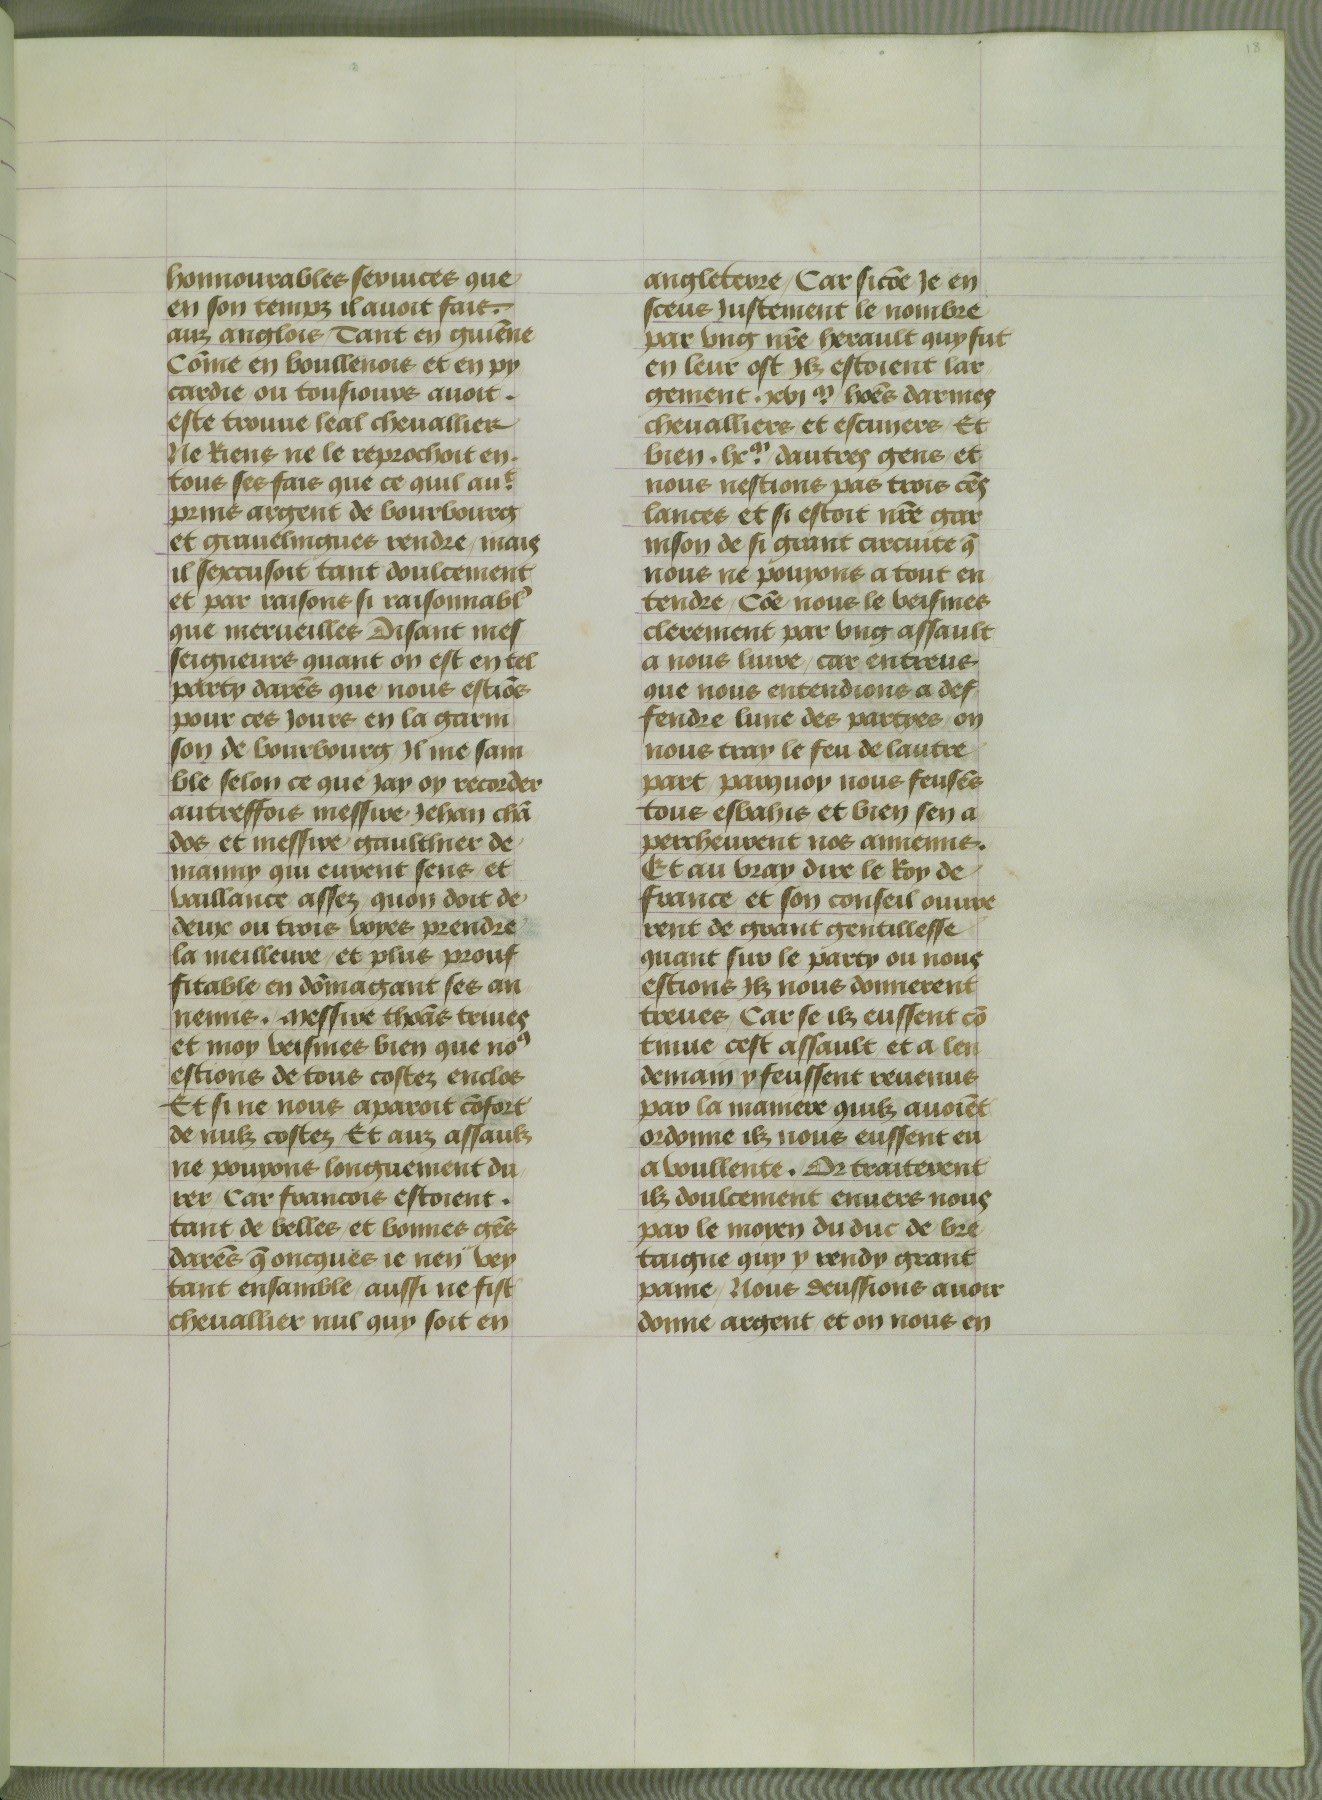 18
honnourables seruices que
en son tempz il auoit fais.
auz anglois Tant en guiēne
Cōme en boullenois et en py
cardie ou tousiours auoit.
este trouue leal cheuallier
Ne Riens ne le reprochoit en.
tous ses fais que ce quil auͭ
prins argent de bourbourg
et grauelingues rendre / mais
il sexcusoit tant doulcement
et par raisons si raisonnabl'
que merueilles Disant mes
seigneurs quant on est en tel
party darēs que nous estiōs
pour ces Jours en la garni
son de bourbourg Jl me sam
ble selon ce que Jay oy recorder
autreffois messire Jehan chā
dos et messire gaulthier de
manny qui eurent sens et
vaillance assez quon doit de
deux ou trois voyes prendre
la meilleure / et plus prouf
fitable en dōmagant ses an
nemis. Messire thōas triues
et moy veismes bien que noꝰ
estions de tous costez enclos
Et si ne nous aparoit cōfort
de nulz costez Et auz assaulz
ne pouyons longuement du
rer / Car francois estoient.
tant de belles / et bonnes gēs
darēs q̄ oncques ie nen vey
tant ensamble / aussi ne fist
cheuallier nul quy soit en
angleterre / Car sicōe Je en
sceus Justement le nombre
par vng nr̄e herault quy fut
en leur ost Jlz estoient lar
gement. xvi ͫ hōēs darmes
cheualliers et escuyers Et
bien. lx ͫ dautres gens et
nous nestions pas trois cēs
lances et si estoit nr̄e gar
nison de si grant circuite q̄
nous ne pouyons a tout en
tendre / Cōe nous le veismes
clerement par vng assault
a nous liure / car entreus
que nous entendions a def
fendre lune des partyes on
nous tray le feu de lautre
part parquoy nous feusēs
tous esbahis et bien sen a
percheurent nos annemis.
Et au vray dire le Roy de
france et son conseil ouure
rent de grant gentillesse
quant sur le party ou nous
estions Jlz nous donnerent
treues Car se ilz eussent cō
tinue cest assault et a len
demain y feussent reuenus
par la maniere quilz auoiēt
ordonne ilz nous eussent eu
a voullente. Or traiterent
ilz doulcement enuers nous
par le moyen du duc de bre
taigne quy y rendy grant
paine / Nous deussions auoir
donne argent et on nous en